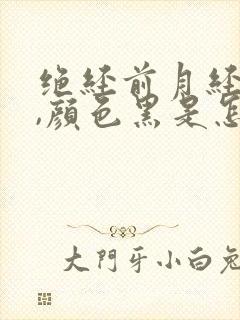 绝经前月经
,颜色黑是怎
大門牙小白兔